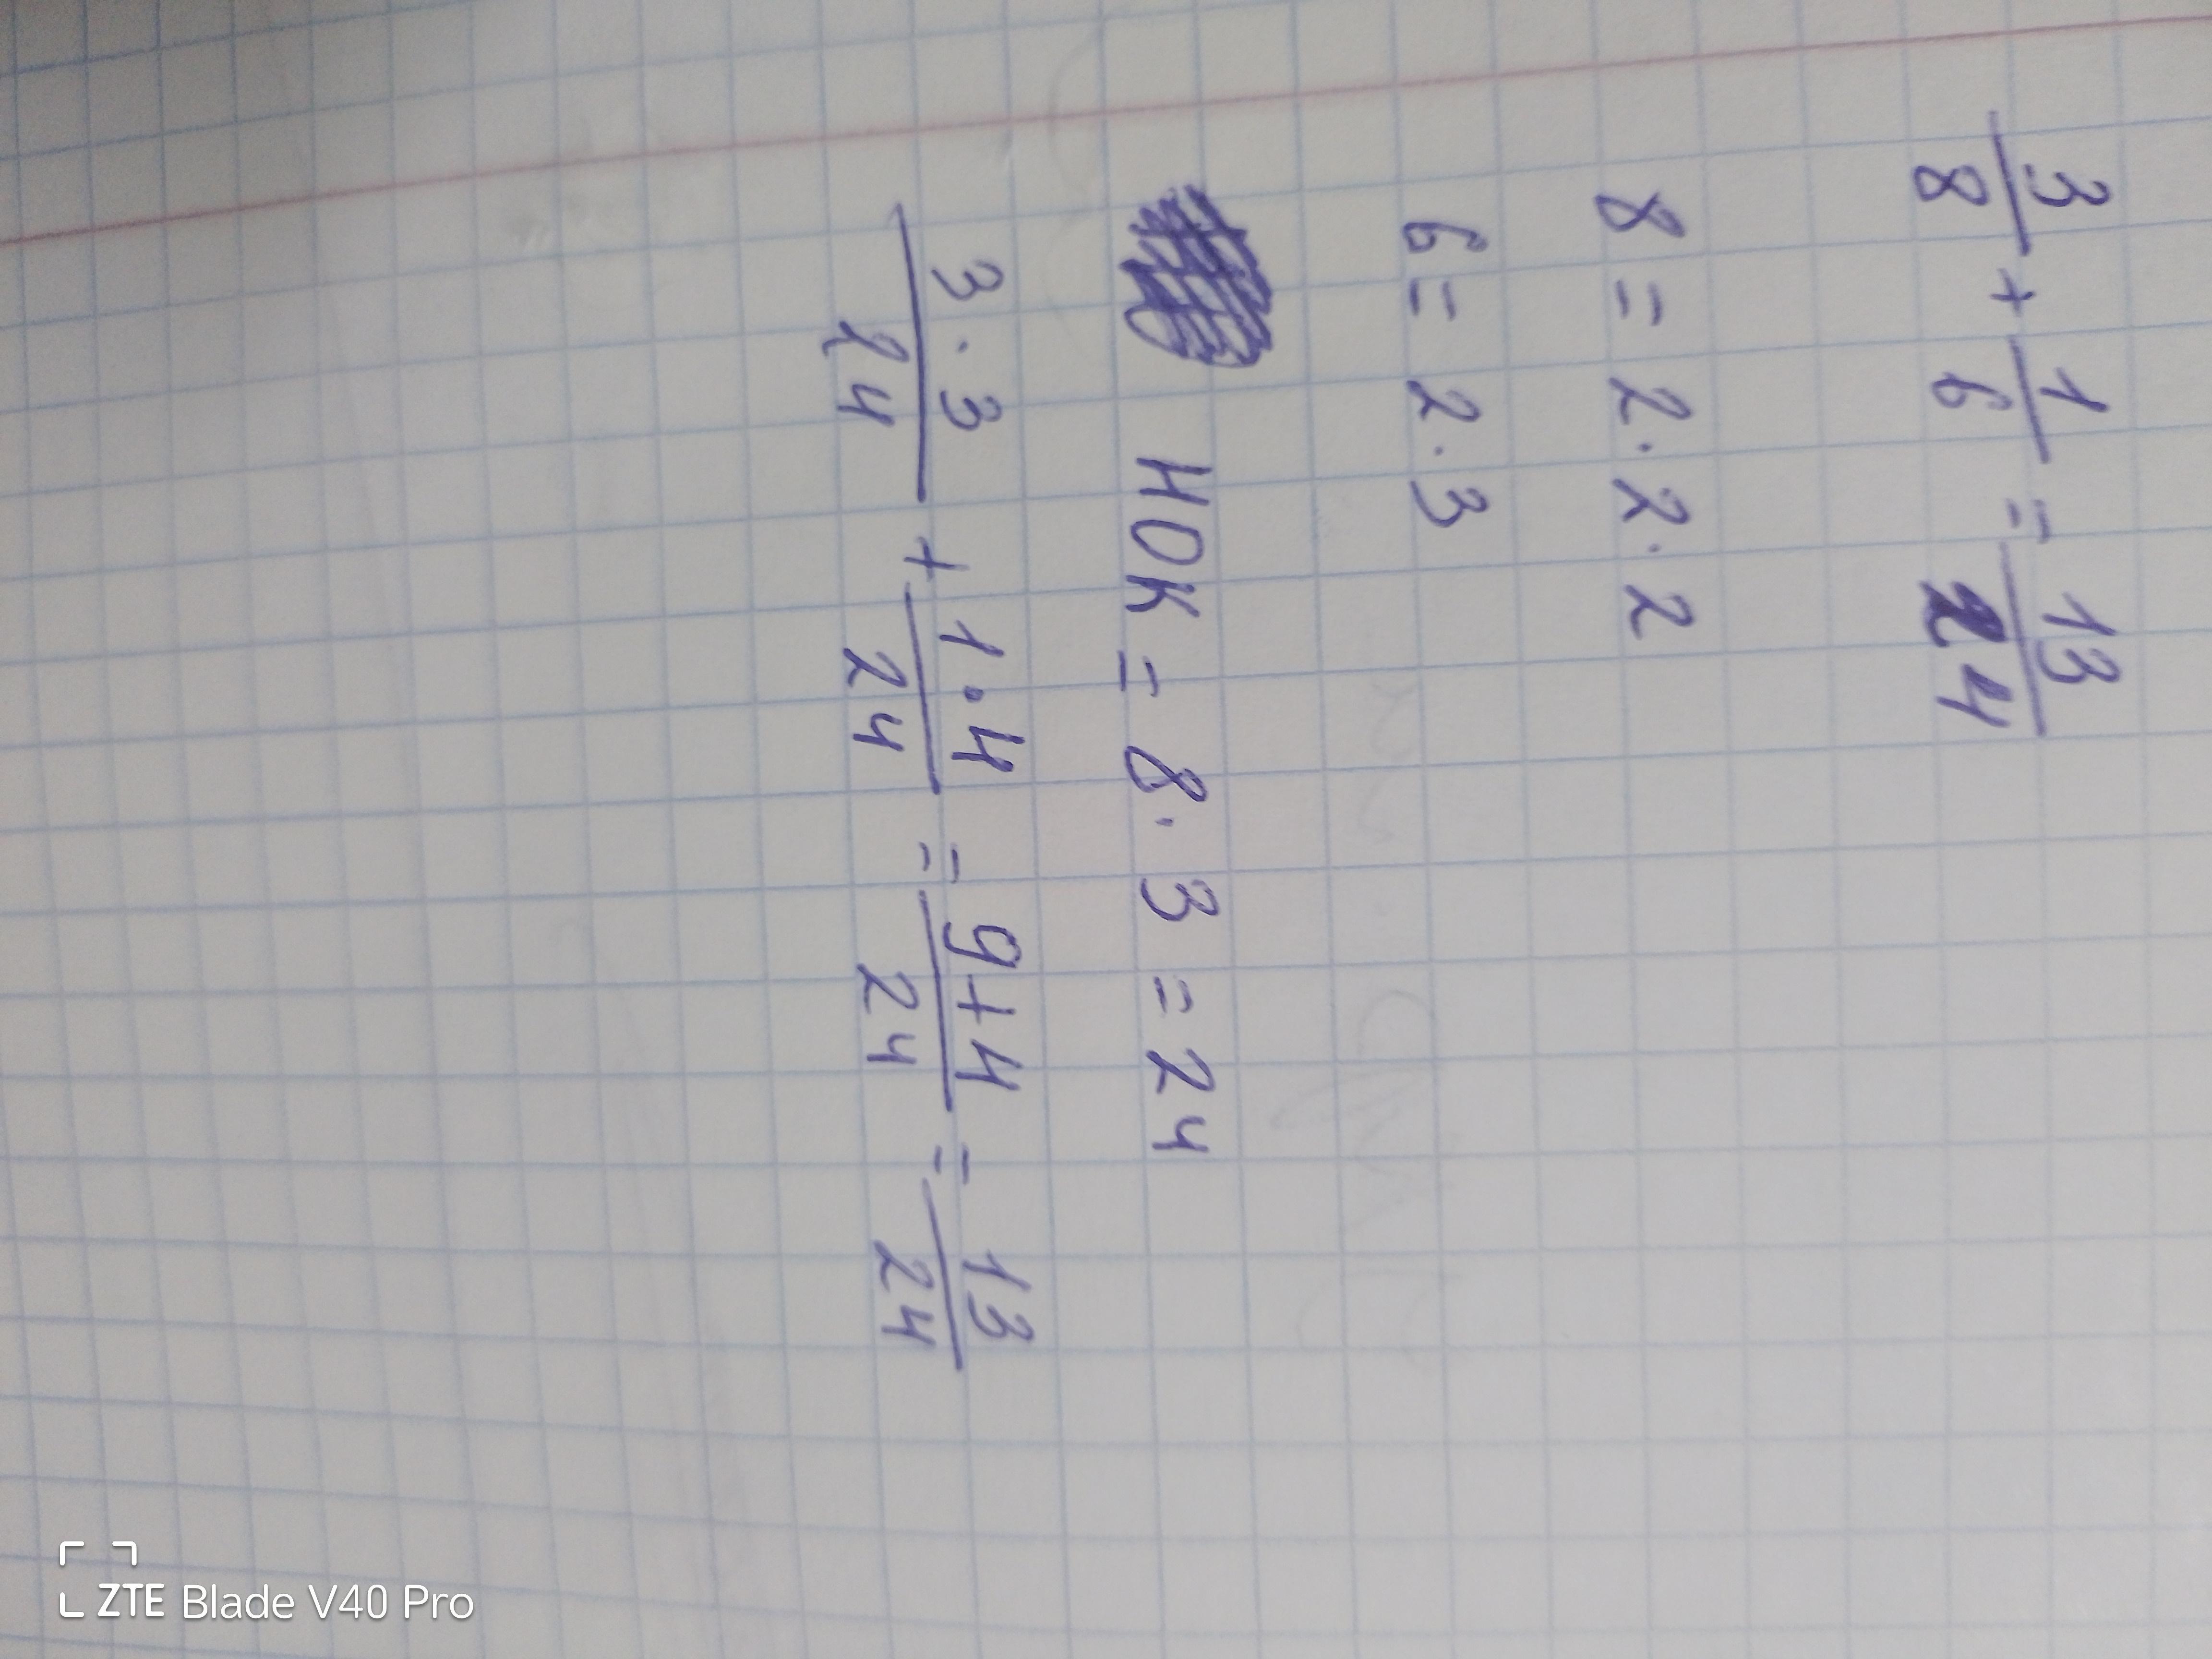 3/8 + 1/6 = 13/24
8 = 2·2·2
6 = 2·3
НОК = 8·3 = 24
3·3/24 + 1·4/24 = 9+4/24 = 13/24
ZTE Blade V40 Pro